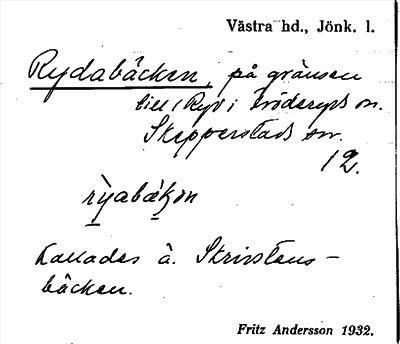 Västra hd., Jönk. l.
Rydabäcken, på gränsen
till Ryd i Bröderyds sn.
Skepperstads sn.
12.
kallades ä. Skrivstens-
bäcken.
Fritz Andersson 1932.